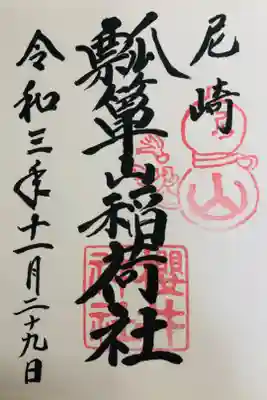 尼崎
瓢箪山稲荷社
令和三年十一月二十九日
櫻井神社